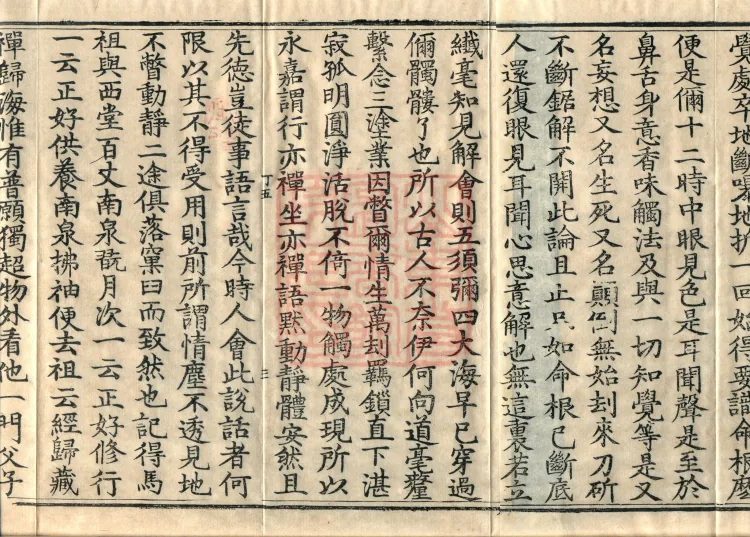 覺處卒地斷嚗地折一回始得要識命根麼
便是儞十二時中眼見色是耳聞聲是至於
鼻舌身意香味觸法及與一切知覺等是又
名妄想又名生死又名顛倒無始刦來刀斫
不斷鋸解不開此論且止只如命根已斷底
人還復眼見耳聞心思意解也無這裏若立
纖毫知見解會則五須彌四大海早已穿過
儞髑髏了也所以古人不奈伊何向道毫釐
繫念三塗業因瞥爾情生萬刦羈鎖直下湛
寂孤明圓淨活脫不倚一物觸處成現所以
永嘉謂行亦禪坐亦禪語默動靜體安然且
丁五
三
先德豈徒事語言哉今時人會此說話者何
限以其不得受用則前所謂情塵不透見地
不瞥動靜二途俱落窠臼而致然也記得馬
祖與西堂百丈南泉翫月次一云正好修行
一云正好供養南泉拂袖便去祖云經歸藏
禪歸海惟有普願獨超物外看他一門父子